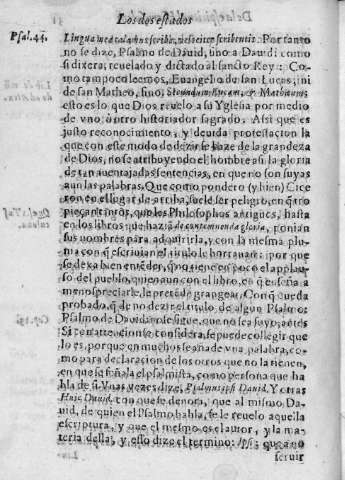 Los dos estados
Psal. 44.
Lingua mea calamus scribæ, velociter scribentis: Por tanto
no se dize, Psalmo de Dauid, vno a Dauid: como
si dixera, reuelado y dictado al sancto Rey: Co-
mo tampoco leemos, Euangelio de san Lucas, ni
de san Matheo, sino, Secundum Lucam, & Matheum:
esto es lo que Dios reuelo a su Yglesia por medio
de vno, ò otro historiador sagrado. Assi que es
justo reconocimiento, y deuida protestacion la
que con este modo de dezir se haze de la grandeza
de Dios, no se atribuyendo el hombre a si la gloria
de tan auentajadas sentencias, en que no son suyas
aun las palabras. Que como pondero (y bien) Cice
ron en el lugar de arriba, suele ser peligro, en q̃
pican tanto, que los Philosophos antiguos, hasta
en los libros que hazian de contemnenda gloria, ponian
sus nombres para adquirirla, y con la mesma plu-
ma con q̃ escriuian el titulo le borrauan: por que
se dexa bien entẽder, q̃ no tiene en poco el applau-
so del pueblo, quien aun con el libro, en q̃ enseña a
menospreciarle, le pretẽde grangear. Con q̃ queda
probado, q̃ de no dezir el titulo de algun Psalmo:
Psalmo de Dauid no se sigue, que no sea suyo, antes
si con attencion se considera, se puede collegir que
lo es, porque en muchos se añade vna palabra, co-
mo para declaracion de los otros que no la tienen,
en que se señala el psalmista, como persona que ha
bla de si. Vnas vezes dize, Psalmus ipsi Dauid. Y otras
Huic Dauid, con que se denota, que al mismo Da-
uid, de quien el Psalmo habla, se le reuelo aquella
escriptura, y que el mesmo es el autor, y la ma-
teria della, y esso dize el termino: Ipsi, que a no
seruir